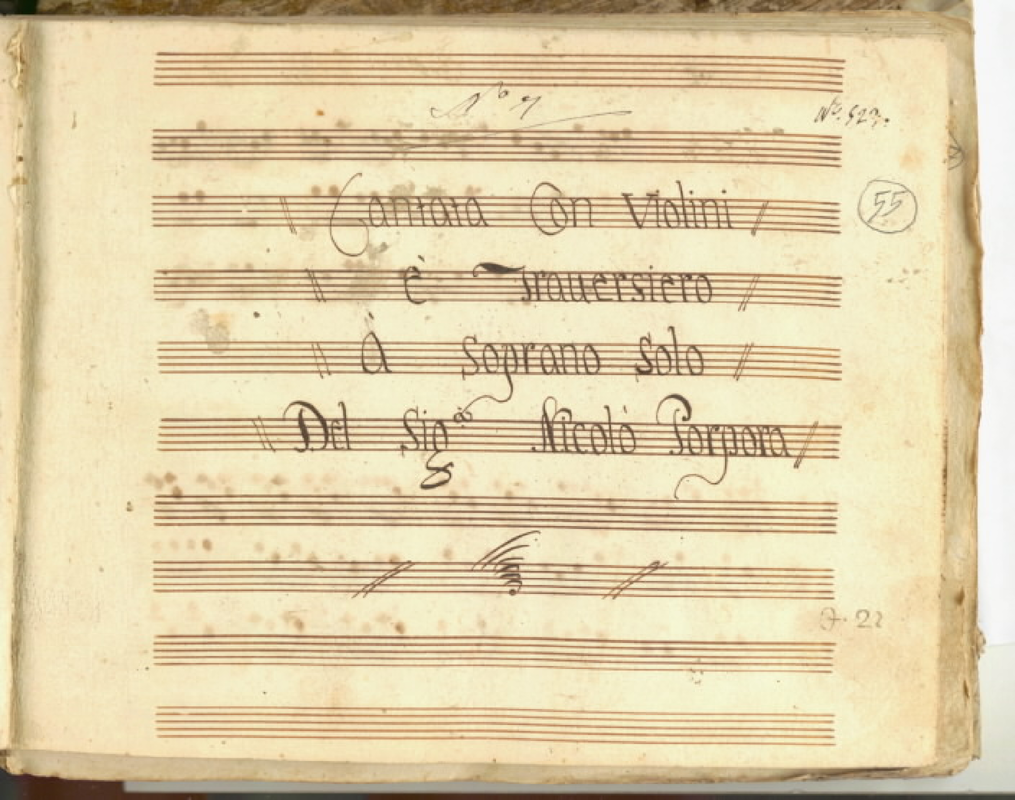 No 7
No. 527.
Cantata Con Violini
55
È Trauersiero
À Soprano Solo
Del Sig.or Nicolò Porpora
7. 22